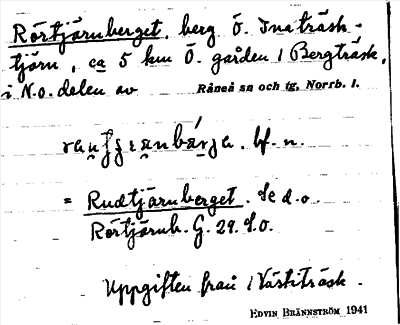 Rörtjärnberget, berg Ö. Inaträsk-
tjärn, ca 5 km Ö. gården i Bergträsk,
i N.o. delen av Råneå sn och tg, Norrb. l.
bf. n.
= Rudtjärnberget. Se d.o.
Rörtjärnb. G. 29. S.O.
Uppgiften från i Västiträsk.
EDVIN BRÄNNSTRÖM 1941